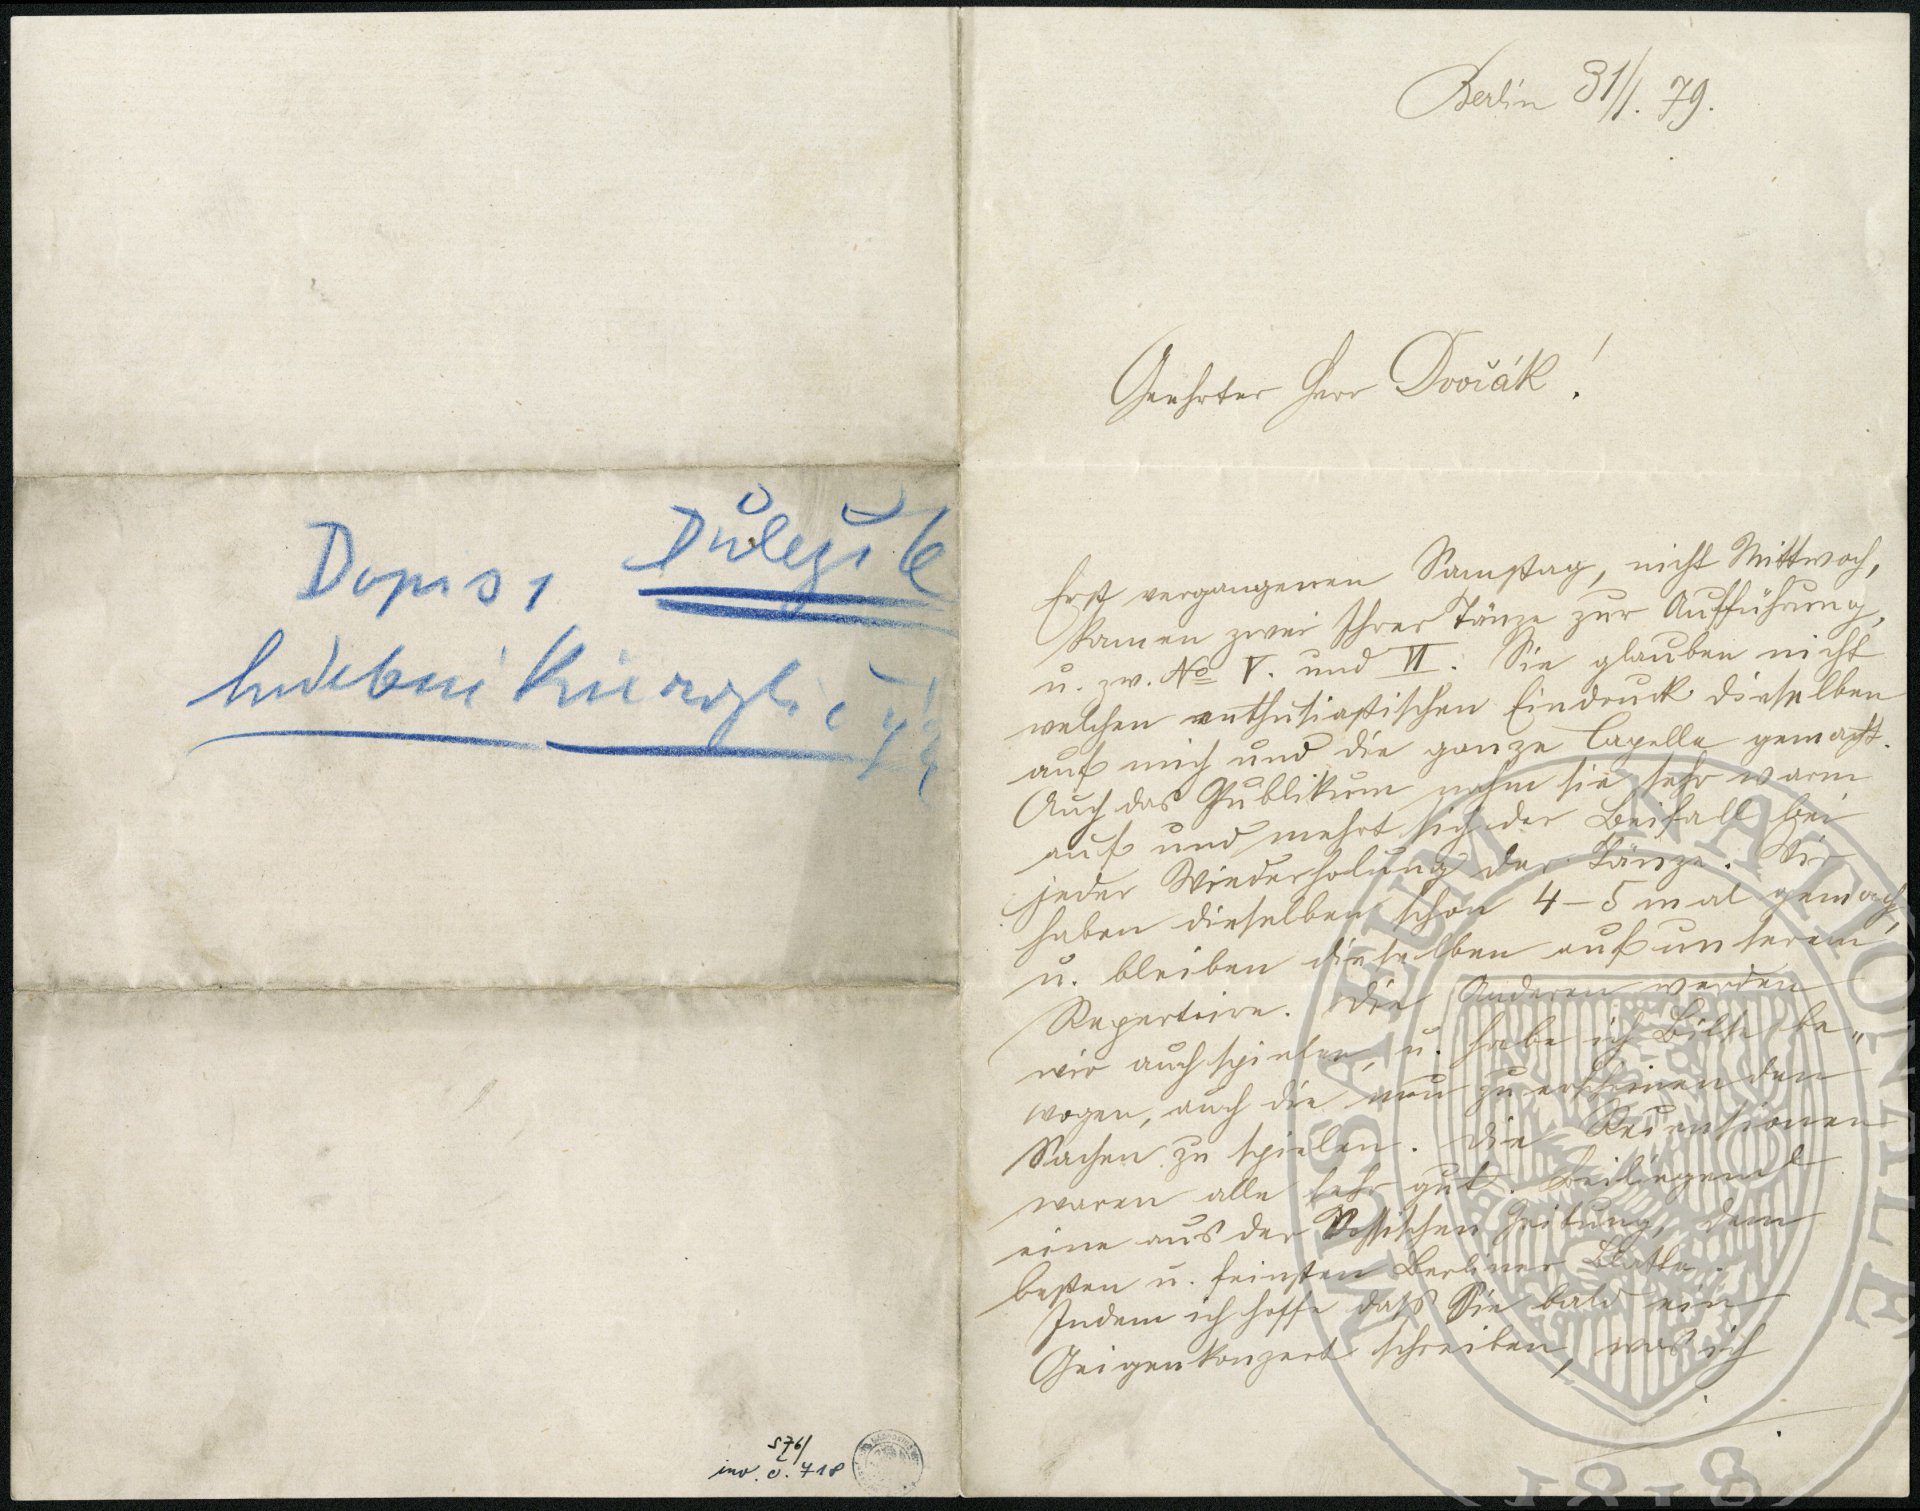 Dopisy Důležité
hudební Ku
S76/
inv. č. 718
Berlin 31/1. 79.
Geehrter Herr Dvořák!
Erst vergangenen Samstag, nicht Mittwoch,
kamen zwei Ihrer Tänze zur Aufführung,
u. zw. No V. und VI. Sie glauben nicht
welchen enthusiastischen Eindruck dieselben
auf mich und die ganze Capelle gemacht.
Auch das Publikum nahm sie sehr warm
auf und mehrt sich der Beifall bei
jeder Wiederholung der Tänze. Wir
haben dieselben schon 4–5 mal gemacht,
u. bleiben dieselben auf unserem
Repertoire. Die Anderen werden
wir auch spielen, u. habe ich Bilse be„
wogen, auch die neu zu erscheinenden
Sachen zu spielen. Die Recensionen
waren alle sehr gut. Beiliegend
eine aus der Vossischen Zeitung, dem
besten u. feinsten Berliner Blatte.
Indem ich hoffe daß Sie bald ein
Geigenkonzert schreiben, was ich
MUSAEUM NATIONALE
1818